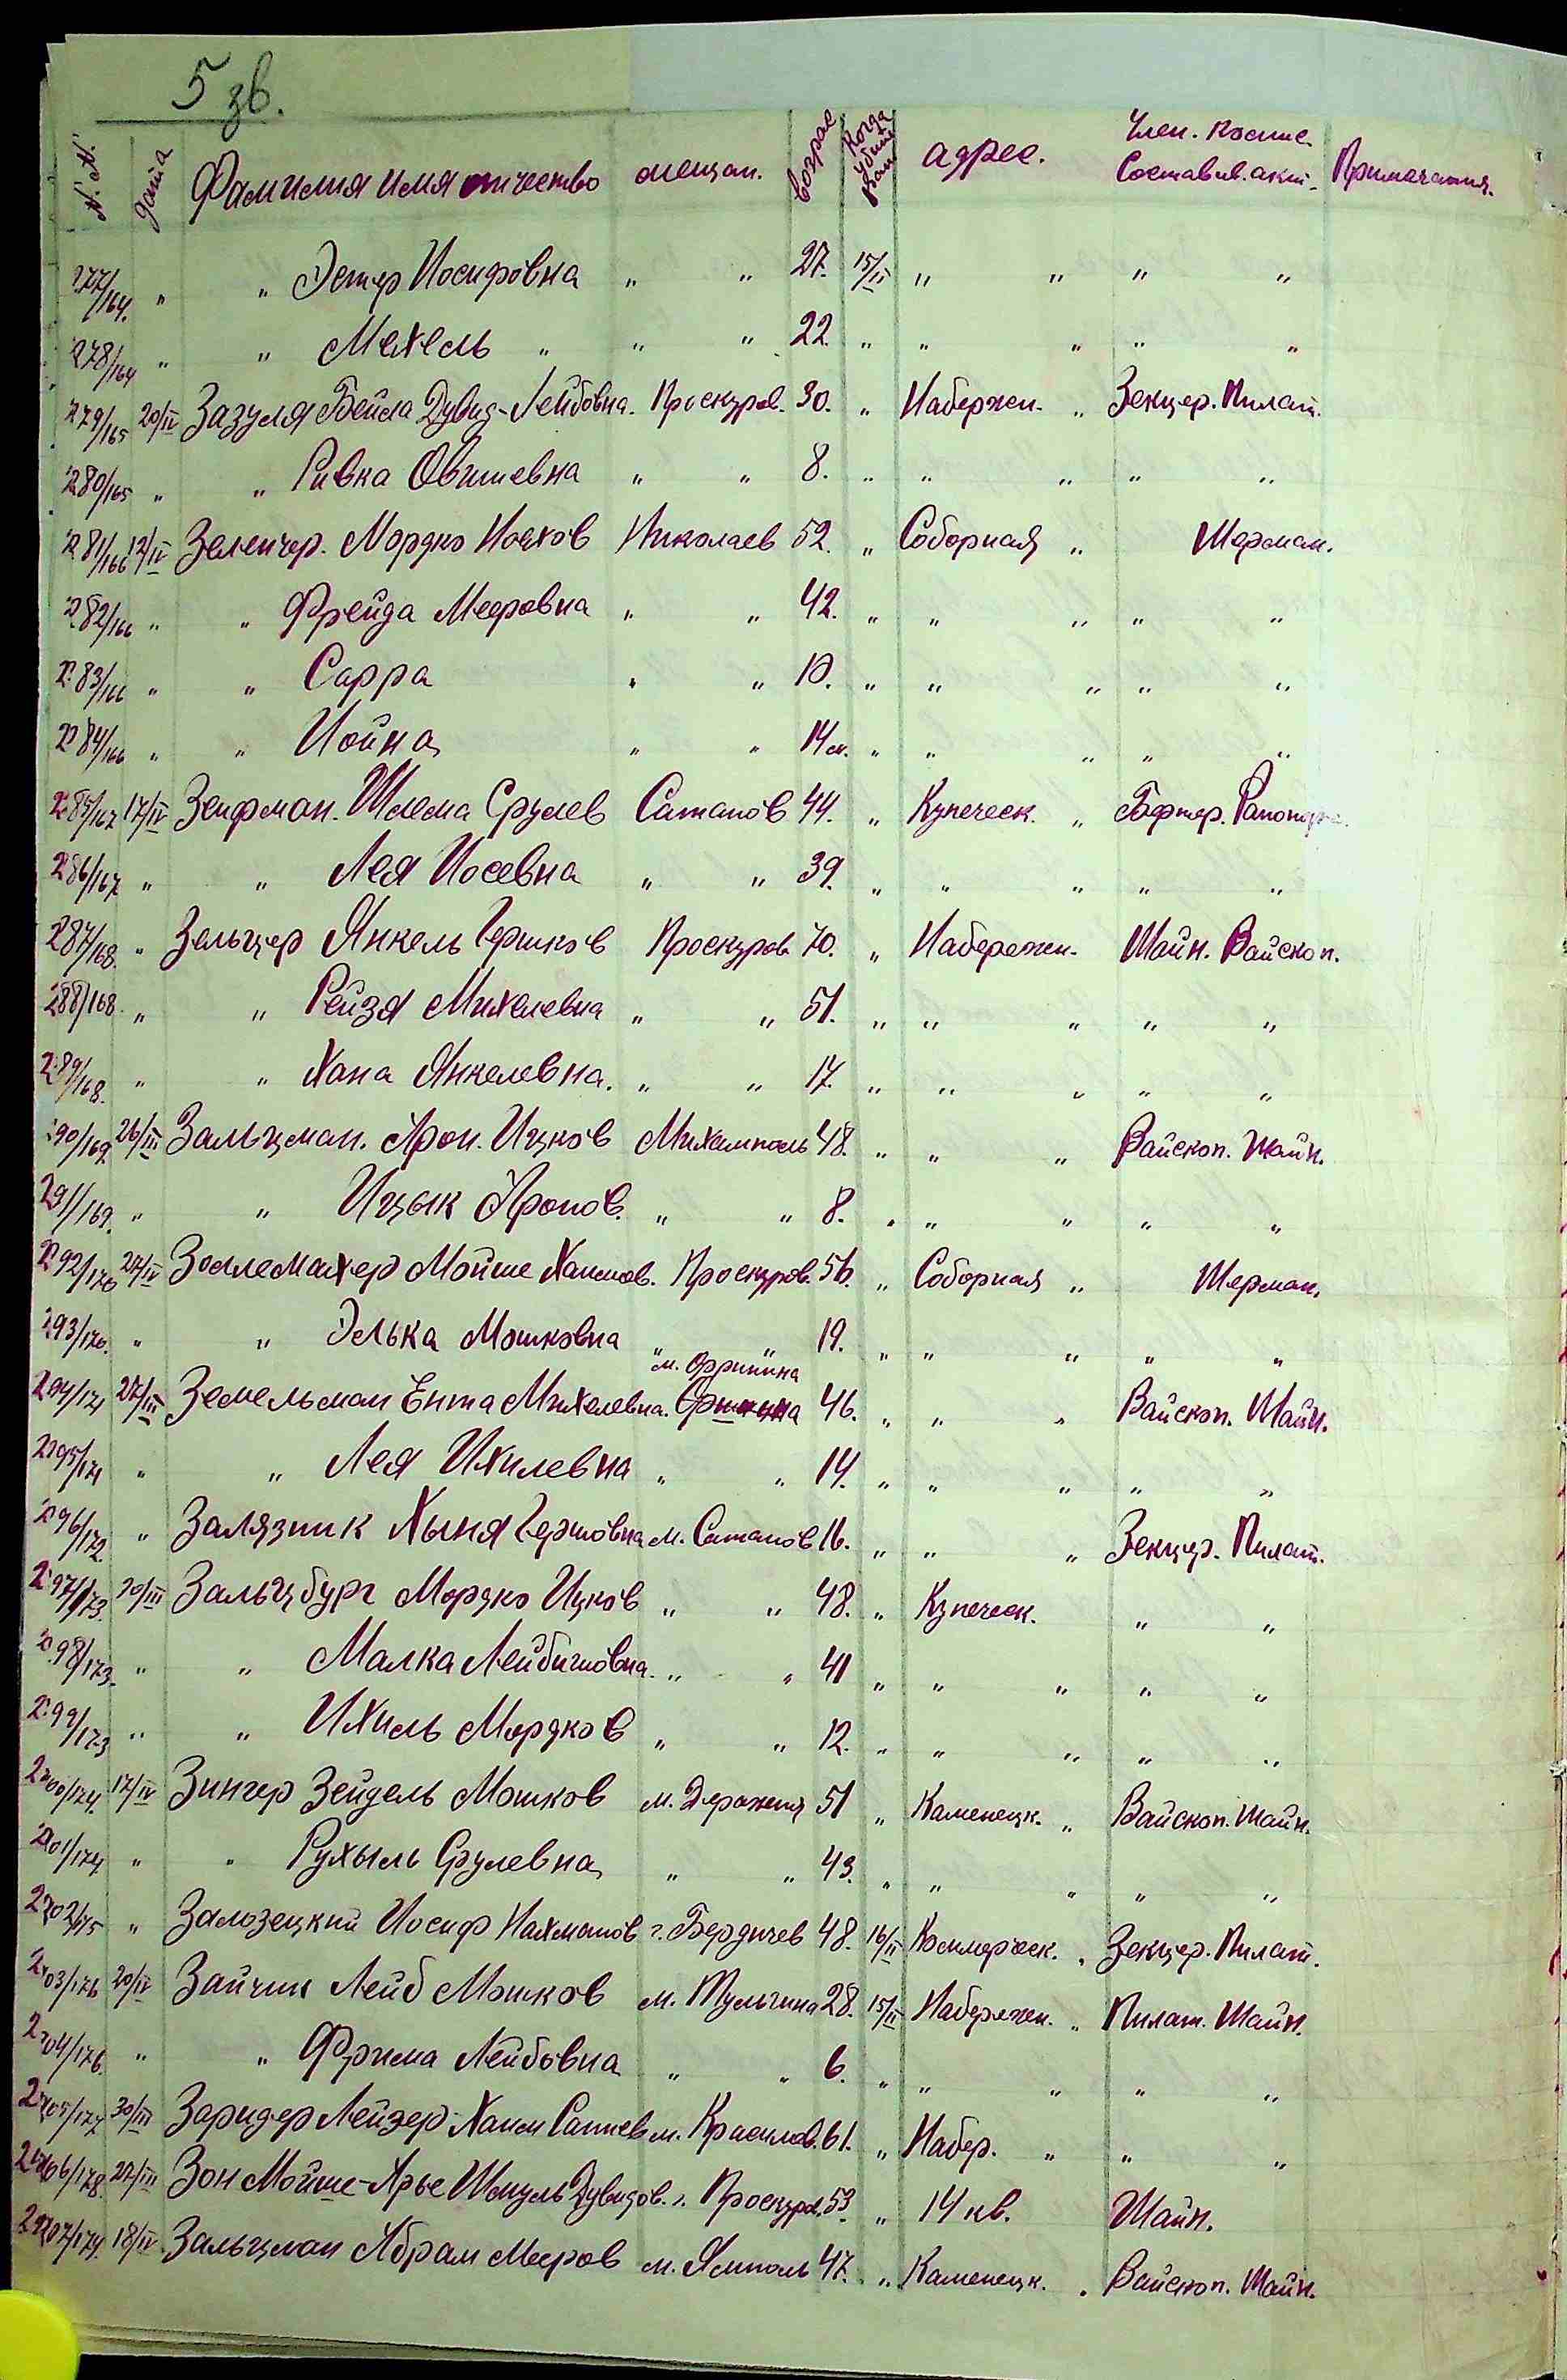 5 зв.
N. N. дата Фамилия имя отчество мещан. возрас когда убит ран адрес. Член. комис. Составив. акт. Примечания.
277/164. " " Эстер Иосифовна " " 27. 15/II " " " "
278/164 " " Мехель " " " 22. " " " " "
279/165 20/IV Зазуля Бейла Дувид-Лейбовна. Проскуров. 30. " Набережн. " Зекцер. Пилат.
280/165 " " Ривка Овшиевна " " 8. " " " " "
281/166 12/IV Зеленчер. Мордко Ноахов Николаев 52. " Соборная " Шерман.
282/166 " " Фрейда Мееровна " " 42. " " " " "
283/166 " " Сарра " " 10. " " " " "
284/166 " " Иойна " " 14 м. " " " " "
285/167 17/IV Зейфман. Шлема Срулев Сатанов 44. " Купеческ. "
286/167 " " Лея Иосевна " " 39. " " " " "
287/168. " Зельцер Янкель Гершков Проскуров 70. " Набережн. Шайн. Вайскоп.
288/168 " " Рейзя Михелевна " " 51. " " " " "
289/168. " " Хана Янкелевна. " " 17. " " " " "
290/169. 26/III Зальцман. Арон. Ицков Михамполь 48. " " " Вайскоп. Шайн.
291/169. " " Ицык Аронов. " " 8. " " " " "
292/170 27/IV Золлемахер Мойше Хаимов. Проскуров. 56. " Соборная " Шерман.
293/170. " " Элька Мошковна " " 19. " " " " "
м. Орринина
294/171 27/IIIЗемельман Ента Михелевна. 46. " " " Вайскоп. Шайн.
295/171 " " Лея Ихилевна " " 14. " " " " "
296/172 " Залязник Хыня Гершовна м. Сатанов 16. " " " Зекцер. Пилат.
297/173. 30/III Зальцбург Мордко Ицков " " 48. " Купеческ. " "
298/173. " " Малка Лейбишовна. " " 41 " " " " "
299/173 " " Ихиль Мордков " " 12. " " " " "
300/174. 17/IV Зингер Зейдель Мошков м. Деражня 51 " Каменецк. " Вайскоп. Шайн.
301/174 " " Рухыль Срулевна " " 43. " " " " "
302/175 " Залозецкий Иосиф Нахманов г. Бердичев 48. 16/II Коммерческ. " Зекцер. Пилат.
303/176 20/IV Зайчик Лейб Мошков м. Тульчина 28. 15/II Набережн. " Пилат. Шайн.
304/176. " " Фрима Лейбовна " " 6. " " " " "
305/177 30/III Заридер Лейзер-Хаим м. Красилов. 61. " Набер. " " "
306/178. 27/III Зон Мойше-Арье Шмуль Дувидов. г. Проскуров. 53 " 14 кв. Шайн.
307/179. 18/IV. Зальцман Абрам Мееров м. Ямполь 47. " Каменецк. " Вайскоп. Шайн.